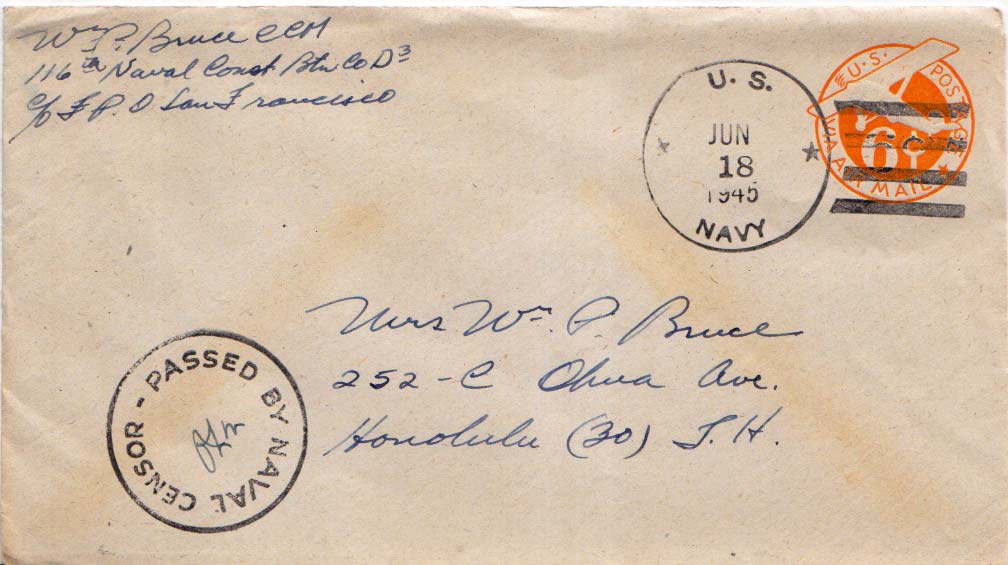 Wm P. Bruce CCM
116th Naval Const Btn Co D3
c/o F.P.O San Francisco
U.S.
JUN
18
1945
NAVY
U.S. POSTAGE
6¢
VIA AIR MAIL
Mrs Wm P. Bruce
252-C Ohua Ave.
Honolulu (30) T.H.
PASSED BY NAVAL CENSOR -